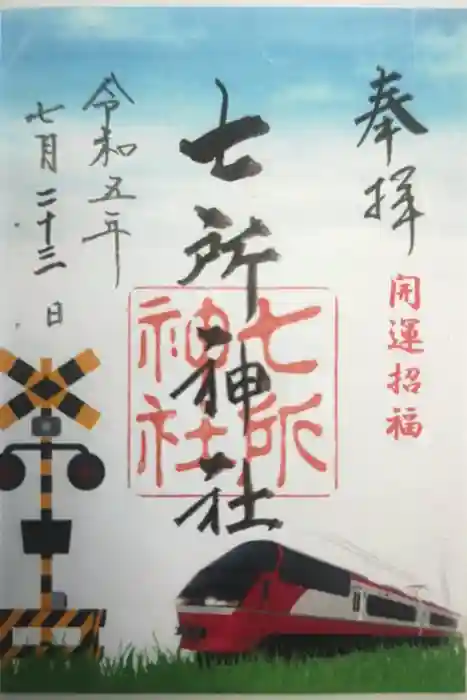 奉拝
開運招福
七所神社
七所
神社
令和五年
七月二十三日